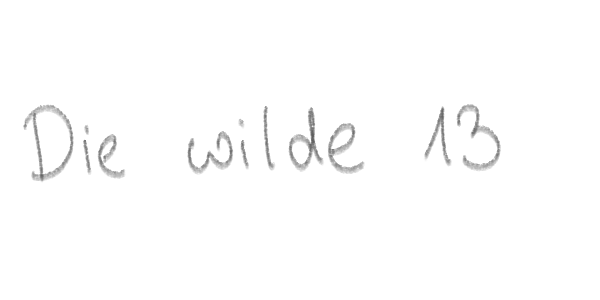 Die wilde 13